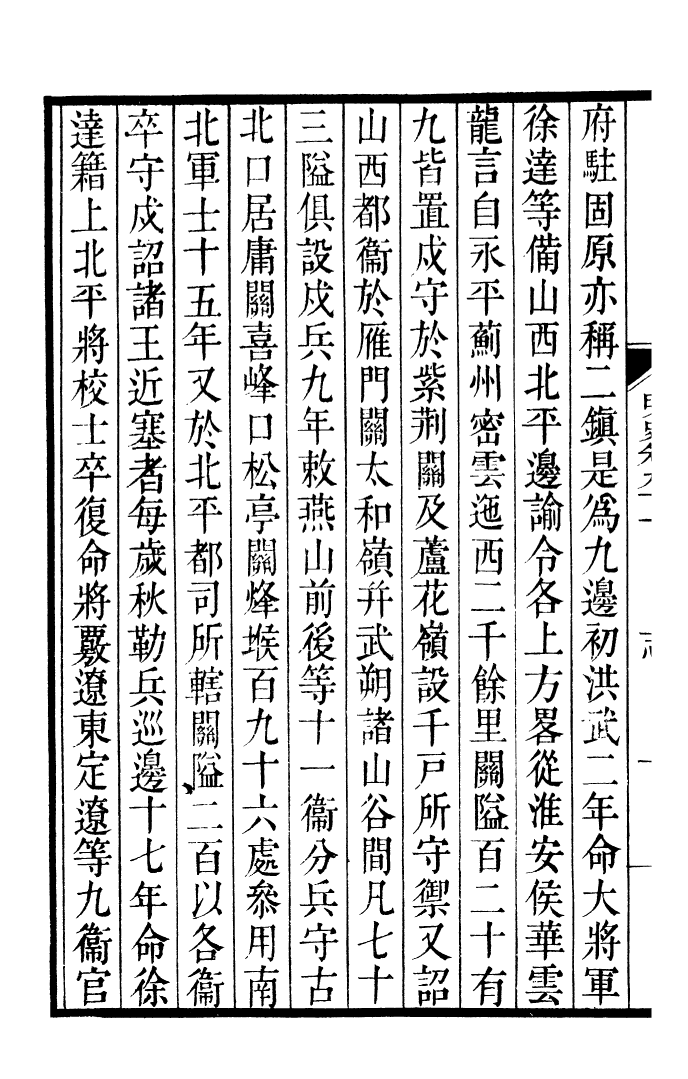 府駐固原亦稱二鎮是爲九邊初洪武二年命大將軍
徐達等備山西北平邊諭令各上方畧從淮安侯華雲
龍言自永平薊州密雲迤西二千餘里關隘百二十有
九皆置戍守於紫荆關及蘆花嶺設千戸所守禦又詔
山西都衞於雁門關太和嶺幷武朔諸山谷間凡七十
三隘俱設戍兵九年敕燕山前後等十一衞分兵守古
北口居庸關喜峰口松亭關烽堠百九十六處叅用南
北軍士十五年又於北平都司所轄關隘二百以各衞
卒守戍詔諸王近塞者每歲秋勒兵巡邊十七年命徐
達籍上北平將校士卒復命將覈遼東定遼等九衞官